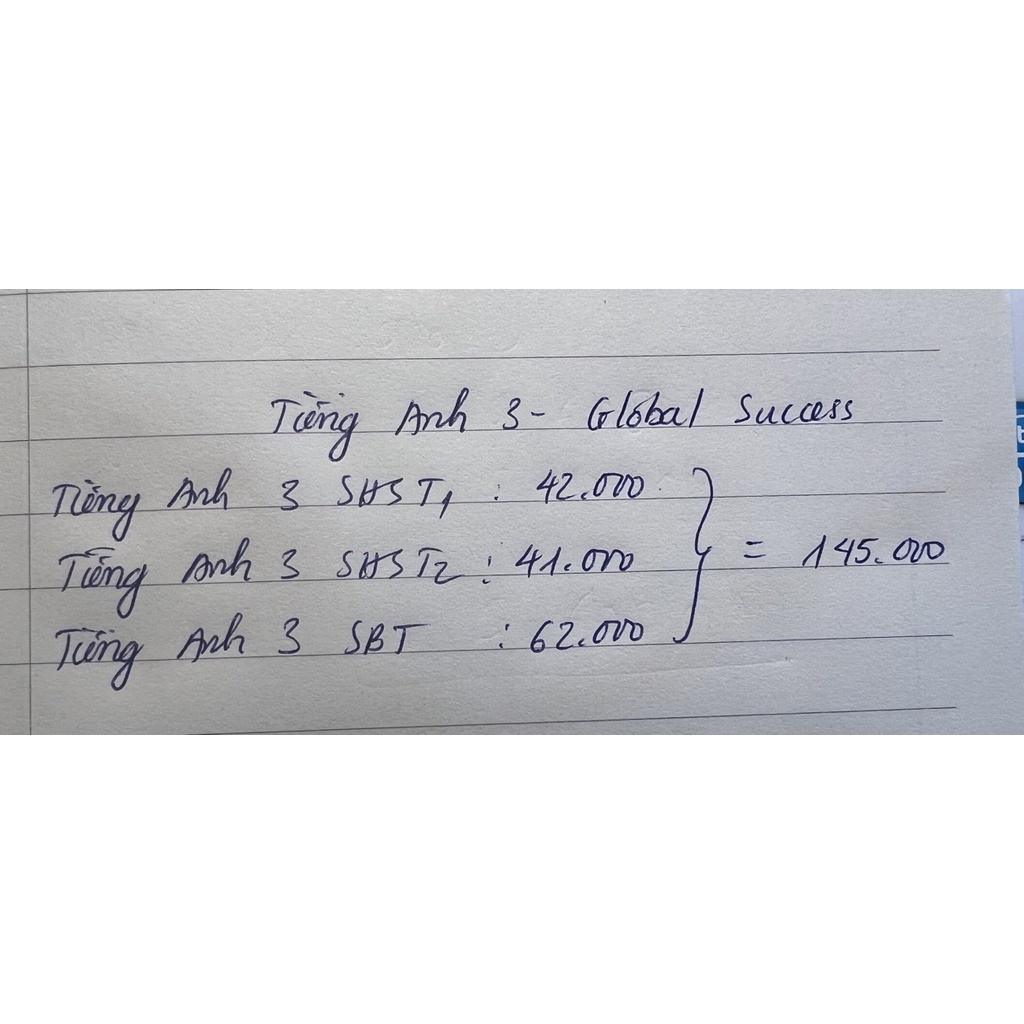 Tiếng Anh 3 - Global Success
Tiếng Anh 3 SHS T1 : 42.000
Tiếng Anh 3 SHS T2 : 41.000
Tiếng Anh 3 SBT : 62.000
= 145.000